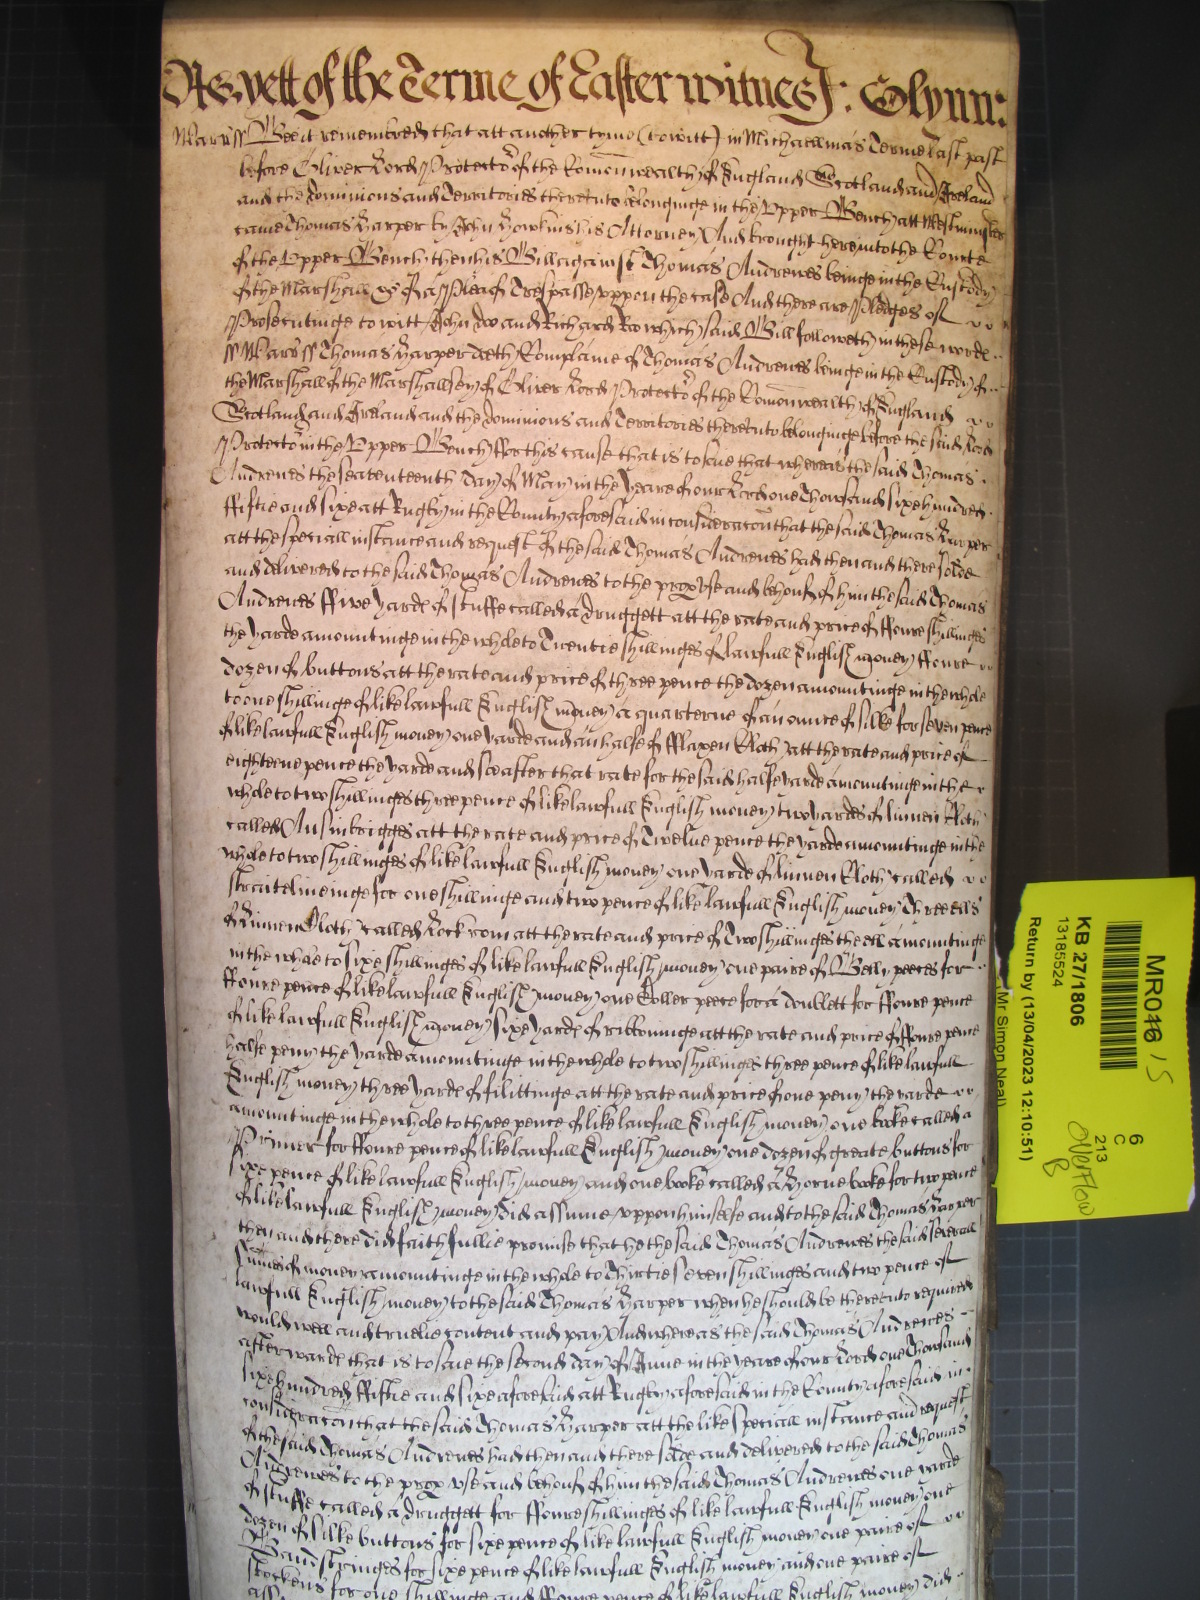 As yett of the Terme of Easter witnes J: Glynn:
Warr ss Bee it remembred that att another tyme (to witt) in Michaellmas Terme last past
before Oliver Lord Protector of the Comonwealth of England Scotland and Ireland
and the dominions and Territories thereunto belonginge in the Upper Bench att Westminster
came Thomas Harper by John Howkins his Attorney And brought here into the Courte
of the Upper Bench then his Bill against Thomas Andrewes beinge in the Custody
of the Marshall &c of a Plea of Trespasse uppon the case And there are Pledges of
Prosecutinge to witt John Doo and Richard Roo which said Bill followeth in these words
ss Warr ss Thomas Harper doth Complaine of Thomas Andrewes beinge in the Custody of
the Marshall of the Marshallsey of Oliver Lord Protector of the Comonwealth of England
Scotland and Ireland and the dominions and Territories thereunto belonginge before the said Lord
Protector in the Upper Bench ffor this cause that is to saie that whereas the said Thomas
Andrewes the seaventeenth day of May in the Yeare of our Lord one Thowsand sixe hundred
ffiftie and sixe att Rugby in the County aforesaid in consideracon that the said Thomas Harper
att the speciall instance and request of the said Thomas Andrewes had then and there solde
and delivered to the said Thomas Andrewes to the prop use and behoof of him the said Thomas
Andrewes ffive Yards of stuffe called a druggett att the rate and price of ffoure shillinges
the Yarde amountinge in the whole to Twentie shillinges of lawfull English money ffoure
dozen of buttons att the rate and price of three pence the dozen amountinge in the whole
to one shillinge of like lawfull English money a quarterne of an ounce of silke for seven pence
of like lawfull English money one Yarde and an halfe of fflaxen Cloth att the rate and price of
eighteene pence the Yarde and soe after that rate for the said halfe Yarde amountinge in the
whole to two shillinges three pence of like lawfull English money two Yardes of linnen Cloth
called Ausinbrigges att the rate and price of Twelve pence the Yarde amountinge in the
whole to two shillinges of like lawfull English money one Yarde of linnen Cloth called
straite lineinge for one shillinge and two pence of like lawfull English money Three ells
of Linnen Cloth called Lockrom att the rate and price of Two shillinges the ell amountinge
in the whole to sixe shillinges of like lawfull English money one paire of Belly peeces for
ffoure pence of like lawfull English money one Coller peece for a doublett for ffoure pence
of like lawfull English money sixe Yards of ribboninge att the rate and price of ffoure pence
halfe peny the Yarde amountinge in the whole to two shillinges three pence of like lawfull
English money three Yards of filittinge att the rate and price of one peny the Yarde
amountinge in the whole to three pence of like lawfull English money one booke called a
Primer for ffoure pence of like lawfull English money one dozen of greate buttons for
sixe pence of like lawfull English money and one booke called a Horne booke for two pence
of like lawfull English money did assume uppon himselfe and to the said Thomas Harper
then and there did faithfullie promise that he the said Thomas Andrewes the said severall
sumes of money amountinge in the whole to Thirtie seven shillinges and two pence of
lawfull English money to the said Thomas Harper when he should be thereunto required
would well and truelie content and pay And whereas the said Thomas Andrewes
afterwards that is to saie the second day of June in the yeare of our Lord one Thowsand
sixe hundred ffiftie and sixe aforesaid att Rugby aforesaid in the County aforesaid in
consideracon that the said Thomas Harper att the like speciall instance and request
of the said Thomas Andrewes had then and there solde and delivered to the said Thomas
Andrewes to the prop use and behoof of him the said Thomas Andrewes one Yarde
of stuffe called a druggett for ffoure shillinges of like lawfull English money one
dozen of silke buttons for sixe pence of like lawfull English money one paire of
Bandstringes for sixe pence of like lawfull English money and one paire of
stockens for one shillinge and ffoure pence of like lawfull English money did
MR016 15
KB 27/1806
13185524
Return by (13/04/2023 12:10:51)
Mr Simon Neal)
6
C
213
Overflow
B